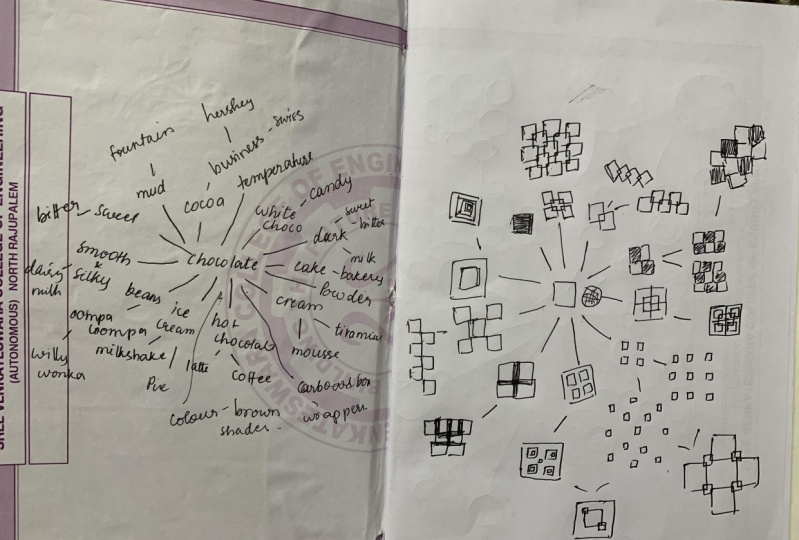 hershey
fountain
business - swiss
mud
cocoa
temperature
bitter - sweet
white choco - candy
sweet
dark - bitter
milk
smooth & silky
dairy milk
chocolate
cake - bakery
powder
beans
ice cream
cream
tiramisu
oompa loompa
hot chocolate
mousse
milkshake
willy wonka
Pie
latte
coffee
cardboard box
wrapper
colour - brown
shades
SREE VENKATESWARA COLLEGE OF ENGINEERING
(AUTONOMOUS) NORTH RAJUPALEM